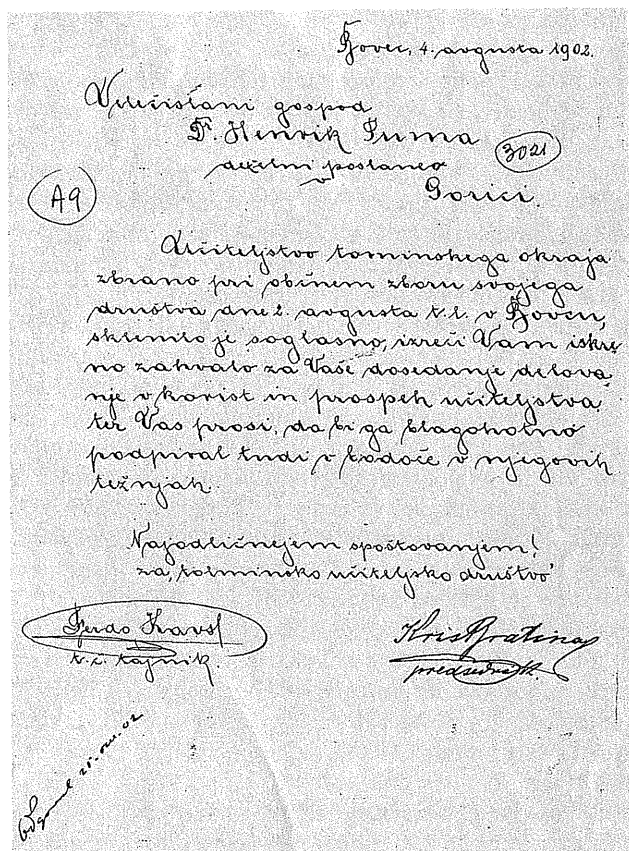 Bovec, 4. avgusta 1902.
Velečislani gospod
Dr. Henrik Tuma
3021
deželni poslanec
v
A9
Gorici.
Učiteljstvo tominskega okraja
zbrano pri občnem zboru svojega
društva dne 2. avgusta t.l. v Bovcu,
sklenilo je soglasno, izreči Vam iskre-
no zahvalo za Vaše dosedanje delova-
nje v korist in prospeh učiteljstva,
ter Vas prosi, da bi ga blagohotno
podpiral tudi v bodoče v njegovih
težnjah.
Z najodličnejem spoštovanjem!
za "tolminsko učiteljsko društvo"
Ferdo Kravsl
t. č. tajnik.
Krist Bratina
predsednik.
02